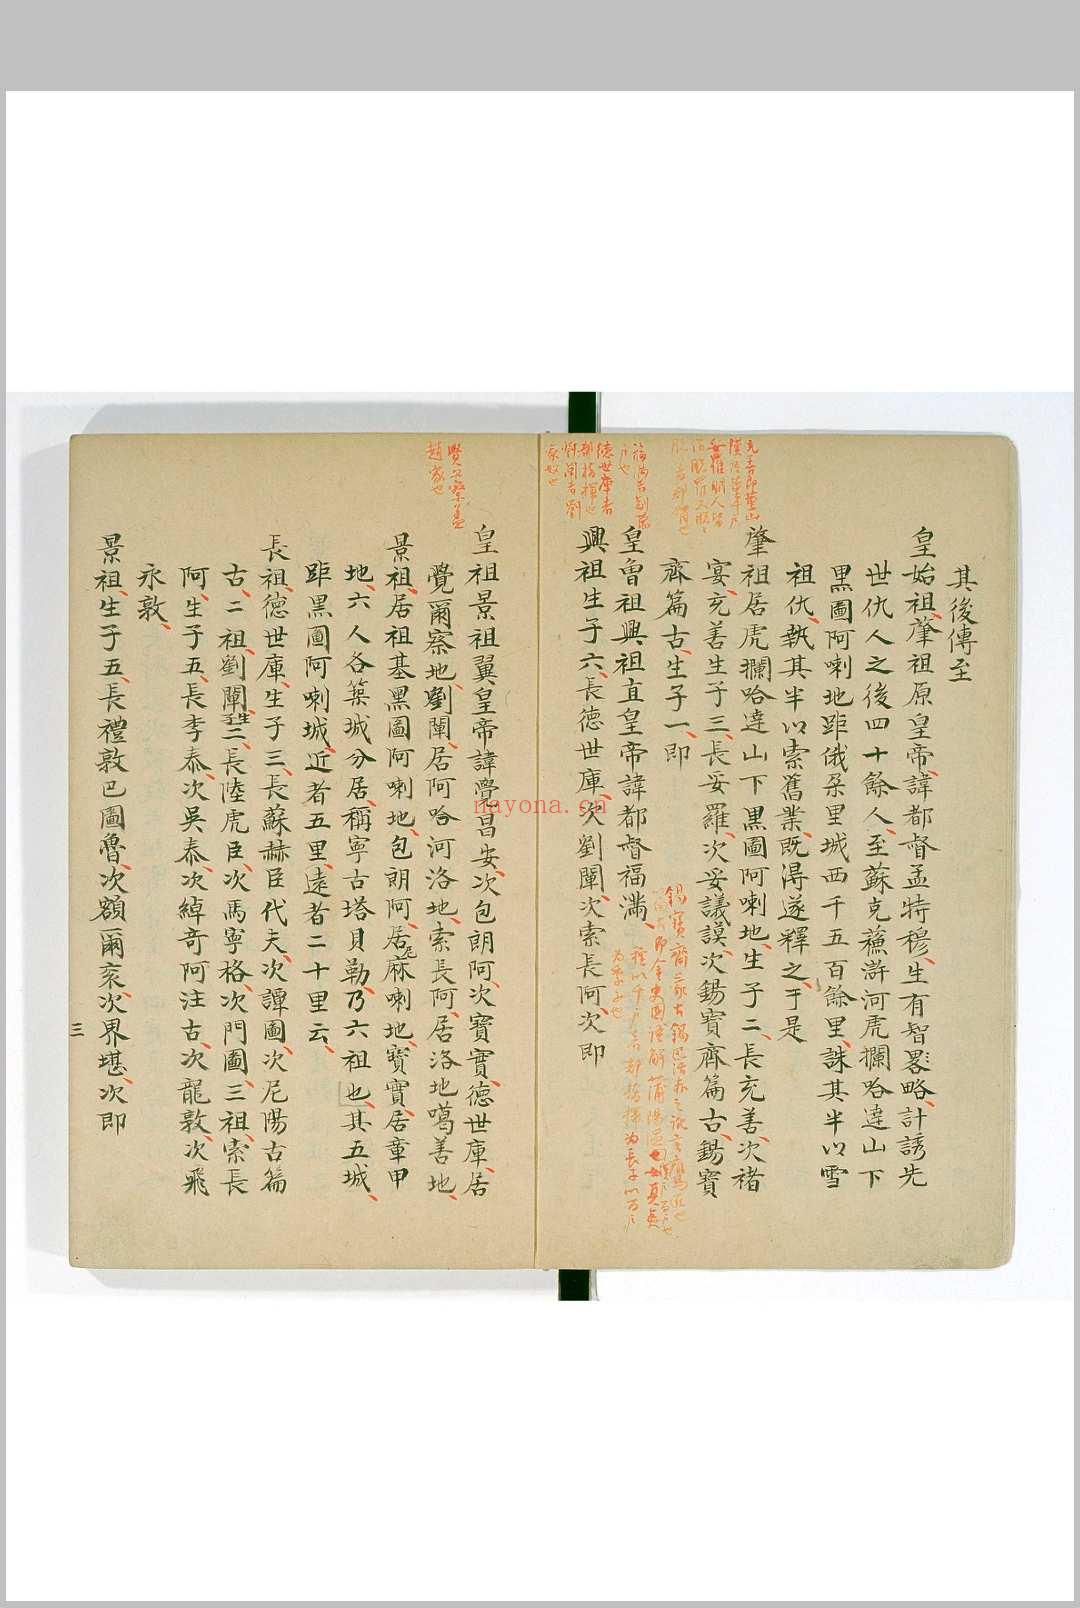 其後傳至
皇始祖肇祖原皇帝諱都督孟特穆生有智畧略計誘先
世仇人之後四十餘人至蘇克蘓滸河虎攔哈達山下
黑圖阿喇地距俄朶里城西千五百餘里誅其半以雪
祖仇執其半以索舊業既淂遂釋之于是
肇祖居虎攔哈達山下黒圖阿喇地生子二長充善次褚
宴充善生子三長妥羅次妥議謨次錫寶齊篇古錫寶
齊篇古生子一即
皇曾祖興祖直皇帝諱都督福滿
興祖生子六長德世庫次劉闡次索長阿次即
皇祖景祖翼皇帝諱覺昌安次包朗阿次寶寶德世庫居
覺爾察地劉闡居阿哈河洛地索長阿居洛地噶善地
景祖居祖基黑圖阿喇地包朗阿居尼麻喇地寶寶居章甲
地六人各築城分居稱寧古塔貝勒乃六祖也其五城
距黑圖阿喇城近者五里遠者二十里云
長祖德世庫生子三長蘇赫臣代夫次譚圖次尼陽古篇
古二祖劉闡生子三長陸虎臣次馬寧格次門圖三祖索長
阿生子五長李泰次吳泰次綽奇阿注古次龍敦次飛
永敦
景祖生子五長禮敦巴圖魯次額爾衮次界堪次即
三
覺尔察盖
趙家也
nayona.cn